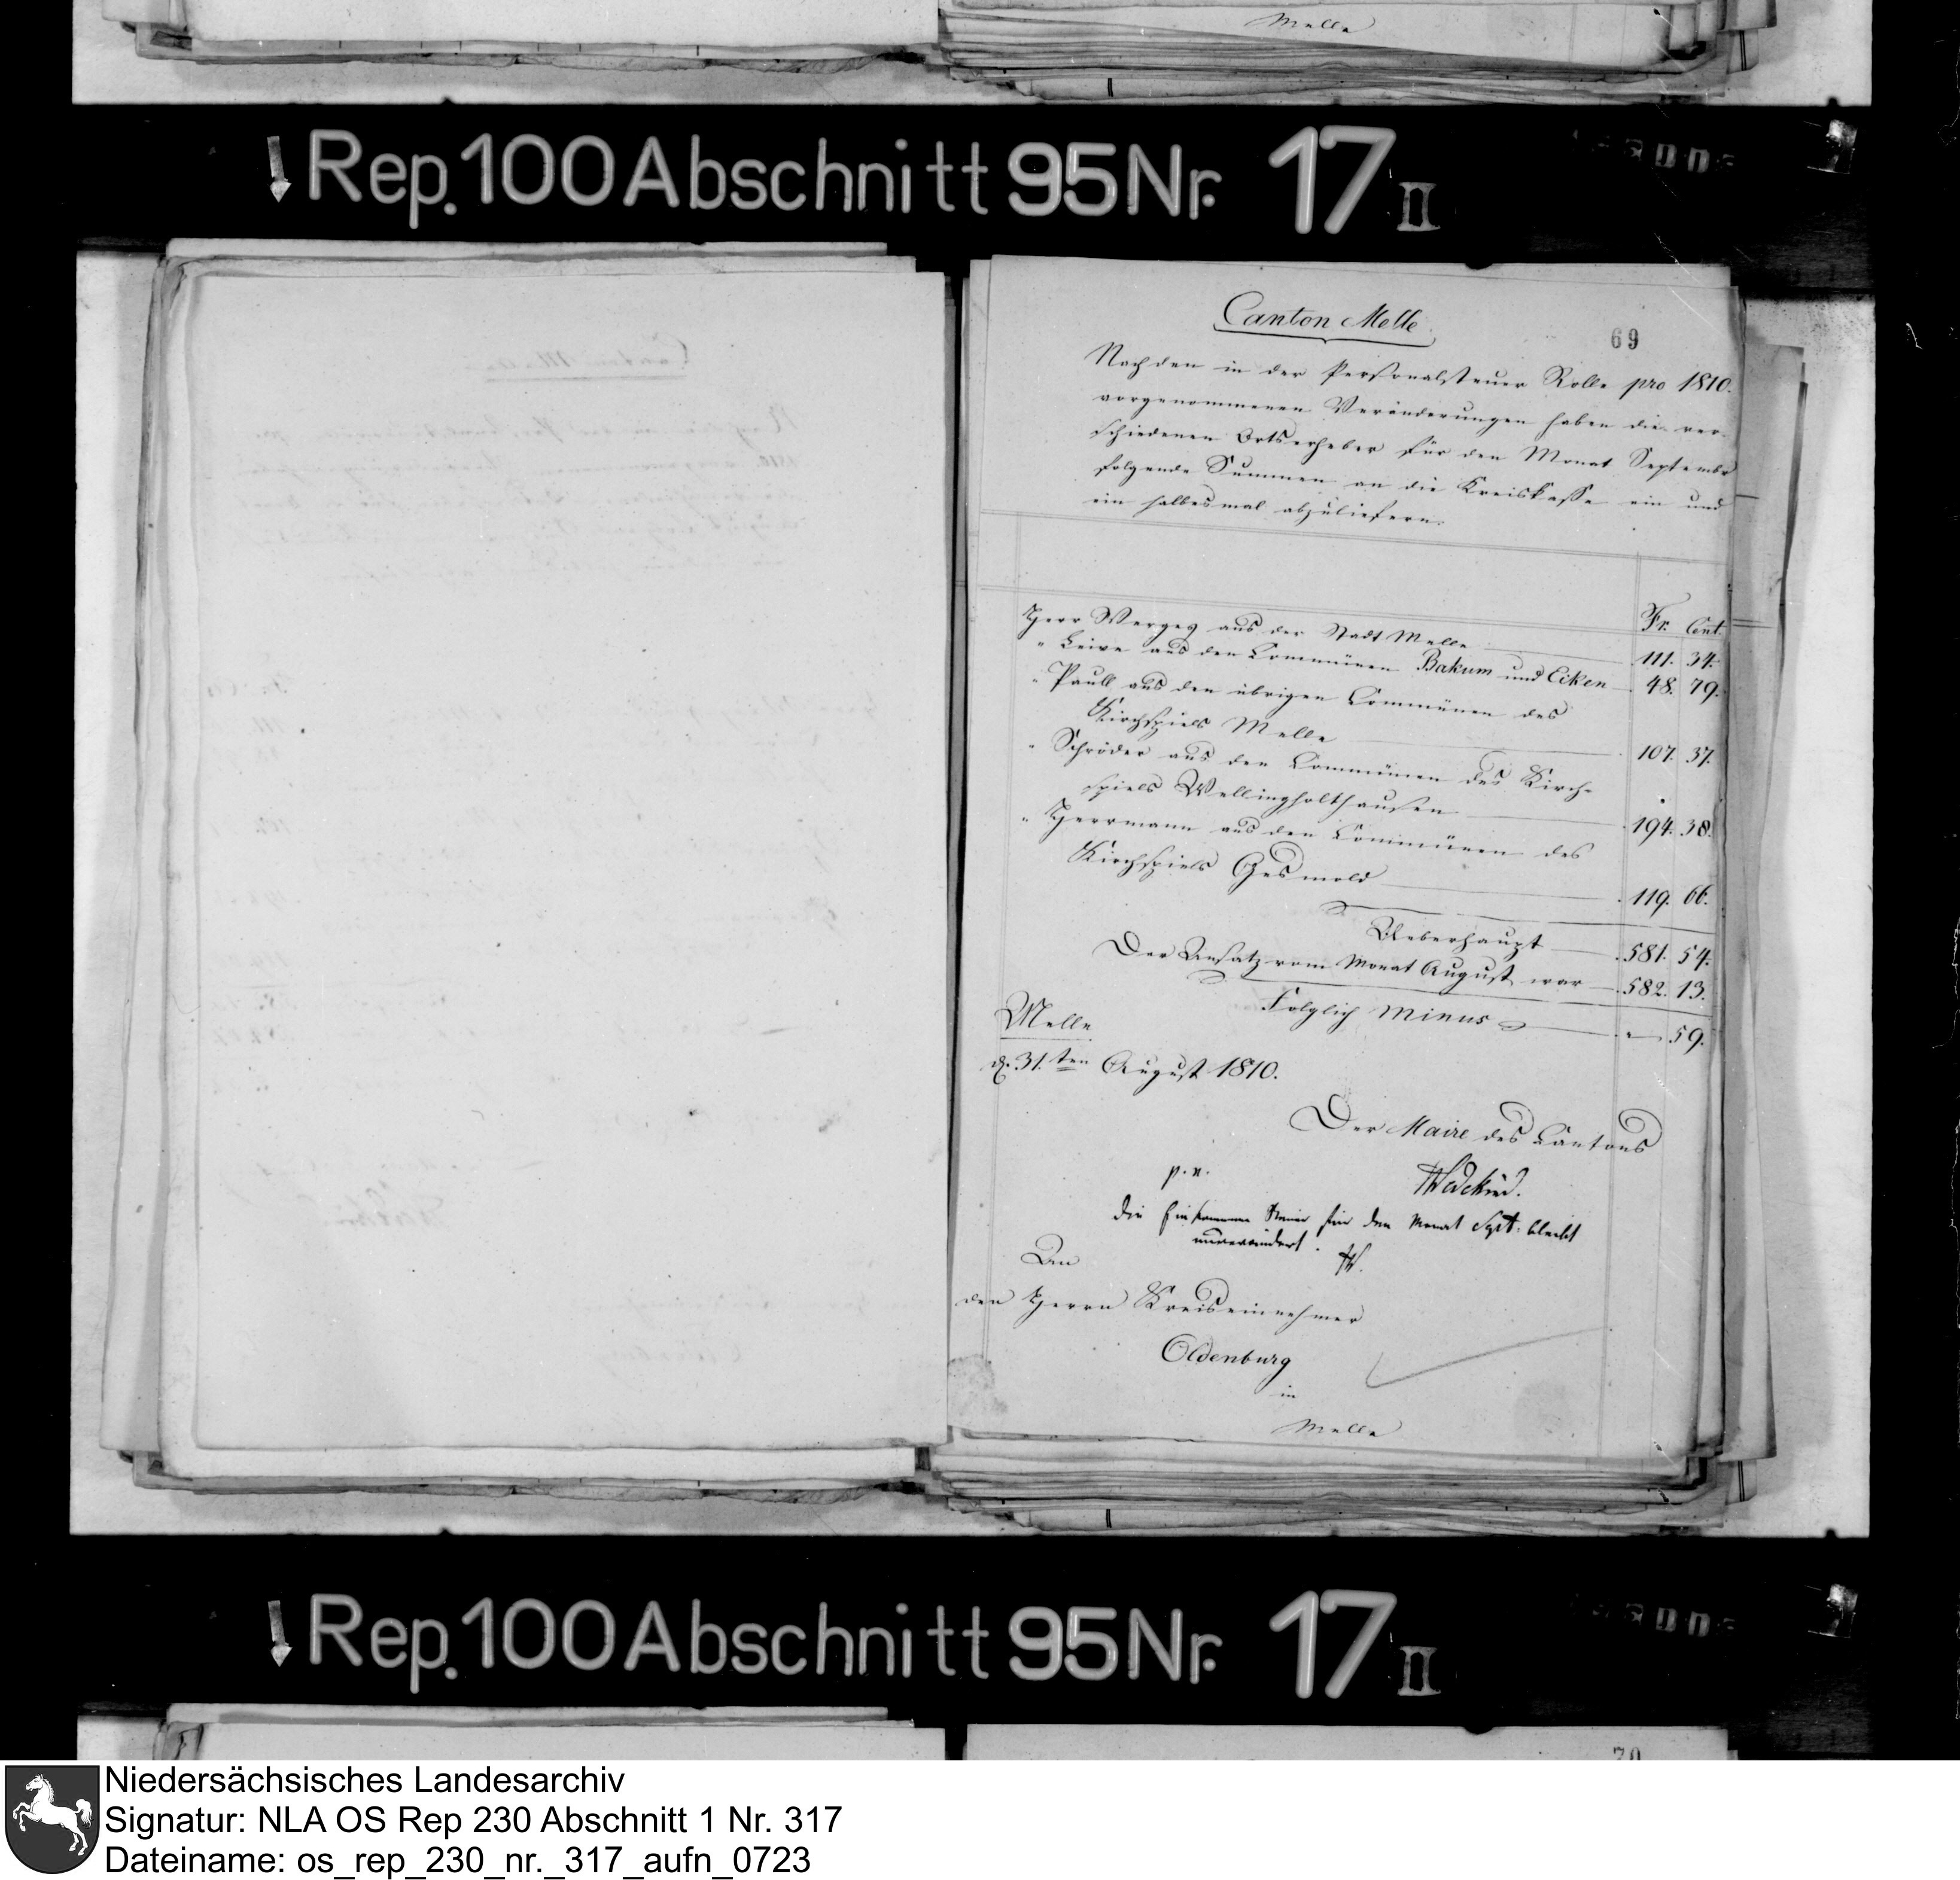 Melle
Rep. 100 Abschnitt 95 Nr. 17 II
Canton Melle
69
Nach den in der Personalsteuer Rolle pro 1810.
vorgenommenen Veränderungen haben die ver-
schiedenen Ortserheber für den Monat Septembr
folgende Summen an die Kreiskasse ein und
ein halbesmal abzuliefern.
Fr. Cent.
Herr Werges aus der Stadt Melle 111. 34.
" Leive aus den Communen Bakum und Eiken 48. 79.
" Paull aus den übrigen Communen des
Kirchspiels Melle 107. 37.
" Schröder aus den Communen des Kirch-
spiels Wellingholthausen 194. 38.
" Herrmann aus den Communen des
Kirchspiels Gesmold 119. 66.
Ueberhaupt 581. 54.
Der Ansatz vom Monat August war 582. 13.
Folglich Minus " 59.
Melle
d. 31.ten August 1810.
Der Maire des Cantons
Wedekind.
p. n.
die Einkommen Steuer für den Monat Sept. bleibt
unverändert.
An
den Herrn Kreiseinnehmer
Oldenburg
in
Melle
Rep. 100 Abschnitt 95 Nr. 17 II
70
Niedersächsisches Landesarchiv
Signatur: NLA OS Rep 230 Abschnitt 1 Nr. 317
Dateiname: os_rep_230_nr._317_aufn_0723